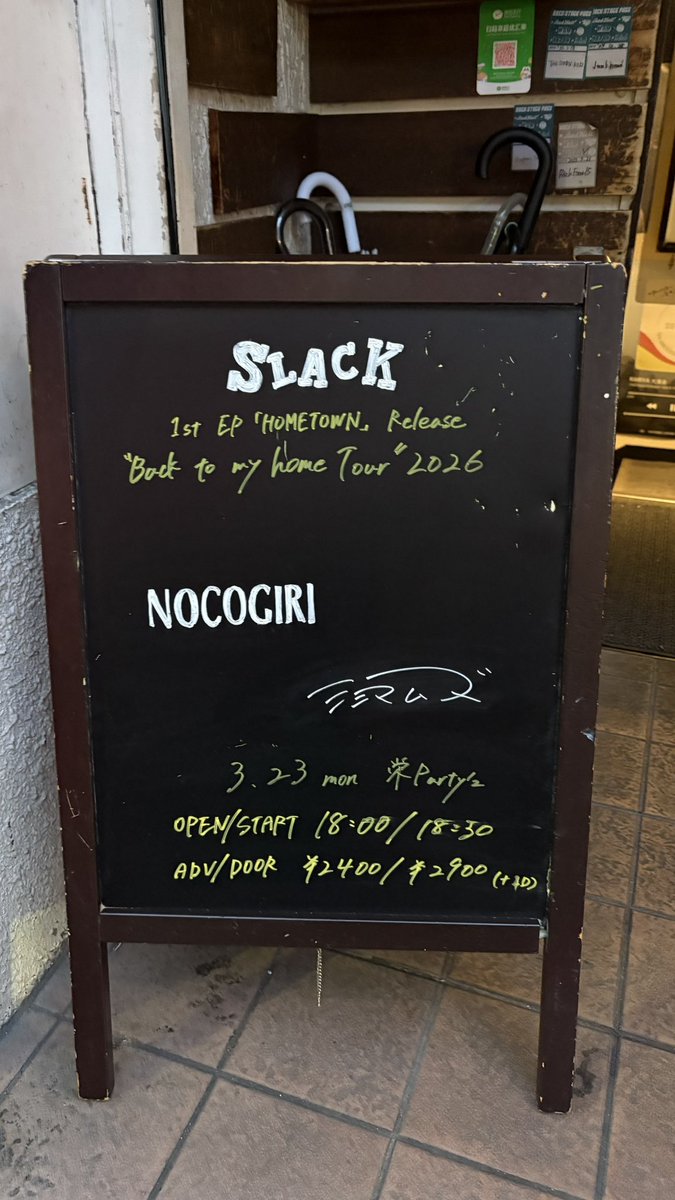 SLACK
1st EP「HOMETOWN」Release
"Back to my home Tour" 2026
NOCOGIRI
3.23 mon 栄Party'z
OPEN/START 18:00/18:30
ADV/DOOR ¥2400/¥2900 (+1D)